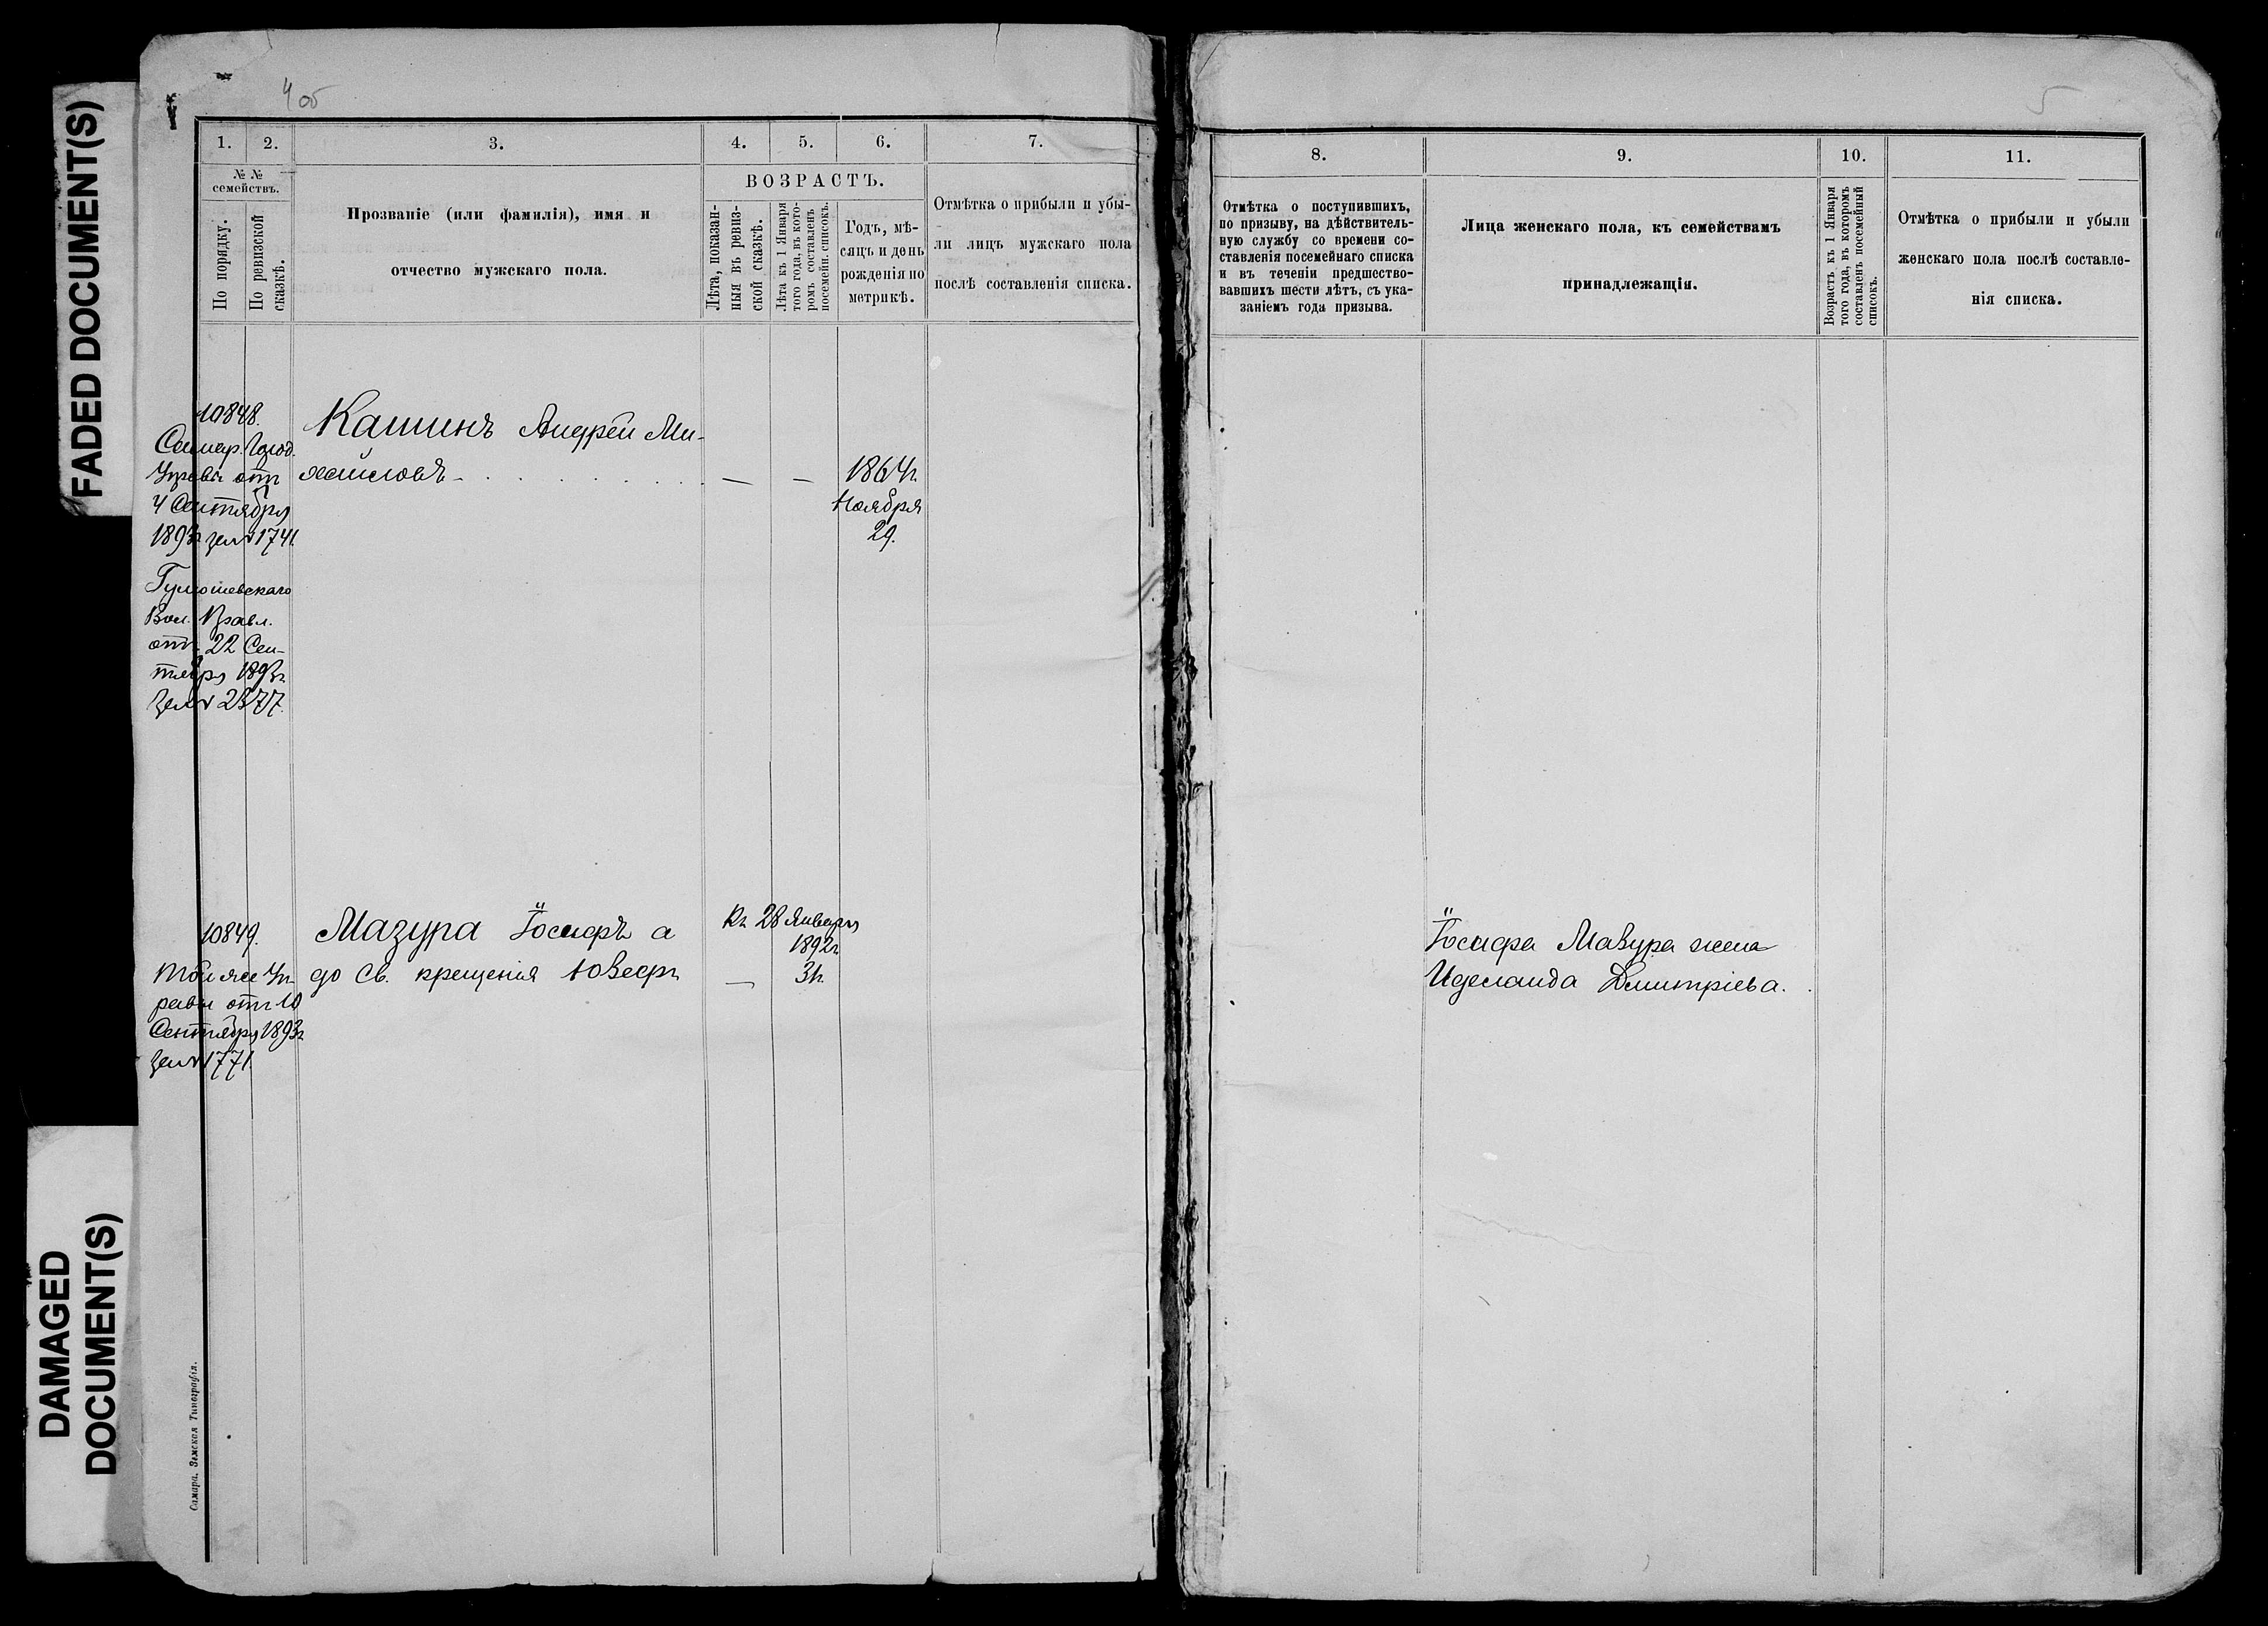 FADED DOCUMENT(S)
DAMAGED
DOCUMENT(S)
4 об
1. 2. 3. 4. 5. 6. 7.
№ №
семействъ.
По порядку.
По ревизской
сказкѣ.
Прозваніе (или фамилія), имя и
отчество мужскаго пола.
ВОЗРАСТЪ.
Лѣта, показан-
ныя въ ревиз-
ской сказкѣ.
Лѣта къ 1 Января
того года, въ кото-
ромъ составленъ
посемейн. списокъ.
Годъ, мѣ-
сяцъ и день
рожденія по
метрикѣ.
Отмѣтка о прибыли и убы-
ли лицъ мужскаго пола
послѣ составленія списка.
10848.
Самар. Город.
Управы отъ
4 Сентября
1893г за № 1741.
Вол. Правл.
отъ 22 Сен-
тября 1893г
за № 2377.
Кашинъ Андрей Ми-
хайловъ
— —
1864г.
Ноября
29.
10849.
Той же Уп-
равы отъ 10
Сентября 1893г
за № 1771.
Мазура Іосифъ а
до Св. крещенія
Къ 28 Января
1892г.
— 31.
Самара. Земская Типографія.
5
8. 9. 10. 11.
Отмѣтка о поступившихъ,
по призыву, на дѣйствитель-
ную службу со времени со-
ставленія посемейнаго списка
и въ теченіи предшество-
вавшихъ шести лѣтъ, съ ука-
заніемъ года призыва.
Лица женскаго пола, къ семействамъ
принадлежащія.
Возрастъ къ 1 Января
того года, въ которомъ
составленъ посемейный
списокъ.
Отмѣтка о прибыли и убыли
женскаго пола послѣ составле-
нія списка.
Іосифа Мазура жена
Иделаида Дмитріева.